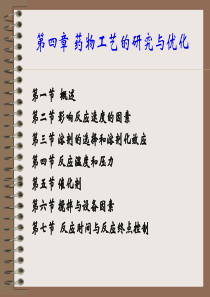 第四章 药物工艺的研究与优化
第一节 概述
第二节 影响反应速度的因素
第三节 溶剂的选择和溶剂化效应
第四节 反应温度和压力
第五节 催化剂
第六节 搅拌与设备因素
第七节 反应时间与反应终点控制